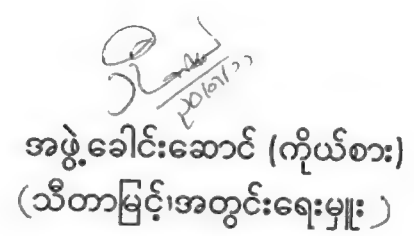 အဖွဲ့ခေါင်းဆောင် (ကိုယ်စား)
(သီတာမြင့်၊အတွင်းရေးမှူး )